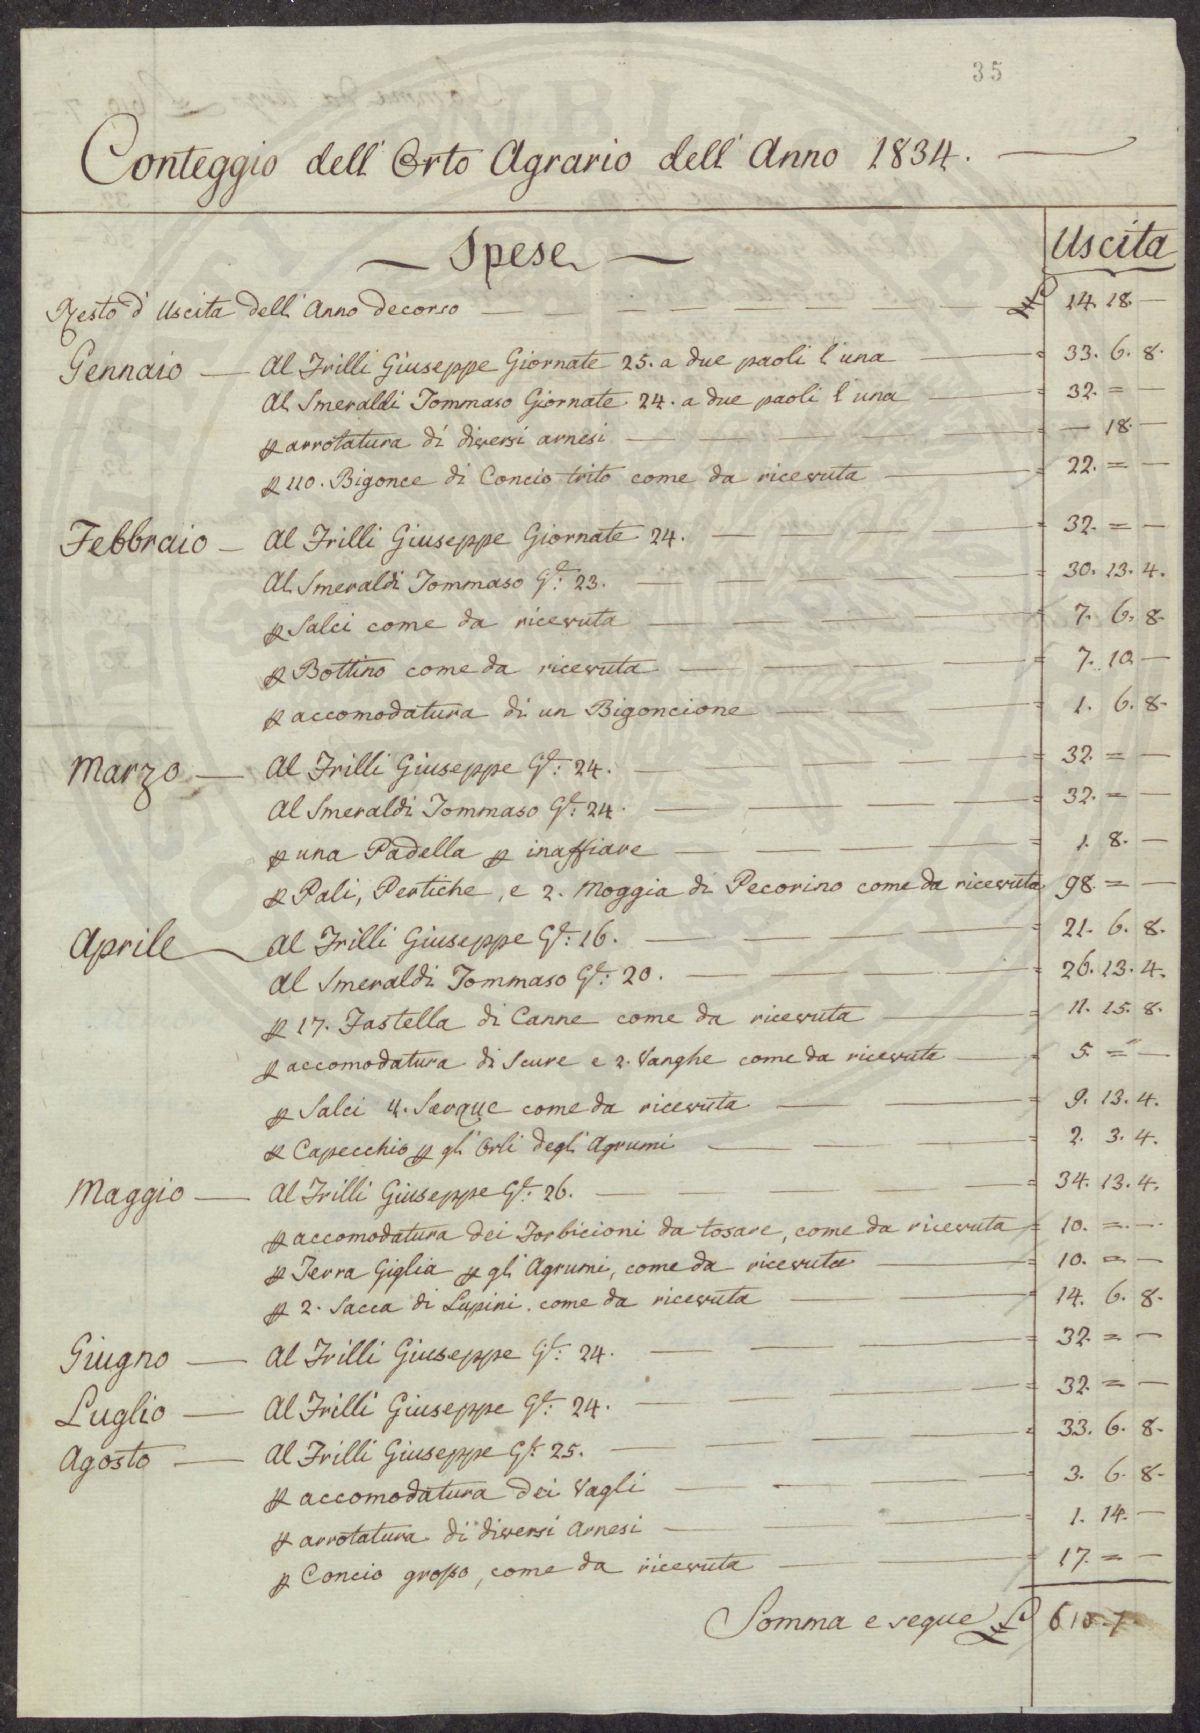 35
Conteggio dell' Orto Agrario dell' Anno 1834.
Spese Uscita
Resto d' Uscita dell' Anno decorso 14. 18. —
Gennaio — Al Frilli Giuseppe Giornate 25. a due paoli l'una = 33. 6. 8.
Al Smeraldi Tommaso Giornate 24. a due paoli l'una = 32. = —
p arrotatura di diversi arnesi = — 18. —
p 110. Bigonce di Concio trito come da ricevuta = 22. = —
Febbraio — Al Frilli Giuseppe Giornate 24. = 32. = —
Al Smeraldi Tommaso Ge: 23. = 30. 13. 4.
p Salci come da ricevuta = 7. 6. 8.
p Bottino come da ricevuta = 7. 10. —
p accomodatura di un Bigoncione = 1. 6. 8.
Marzo — Al Frilli Giuseppe Ge: 24. = 32. = —
Al Smeraldi Tommaso Ge: 24. = 32. = —
p una Padella p inaffiare = 1. 8. —
p Pali, Pertiche, e 2. Moggia di Pecorino come da ricevuta 98. = —
Aprile — Al Frilli Giuseppe Ge: 16. = 21. 6. 8.
Al Smeraldi Tommaso Ge: 20. = 26. 13. 4.
p 17. Fastella di Canne come da ricevuta = 11. 15. 8.
p accomodatura di Scure e 2. Vanghe come da ricevuta = 5. = —
p Salci 4. come da ricevuta = 9. 13. 4.
p Capecchio p gl' Orli degl' Agrumi = 2. 3. 4.
Maggio — Al Frilli Giuseppe Ge: 26. = 34. 13. 4.
p accomodatura dei Forbicioni da tosare, come da ricevuta = 10. = —
p Terra Giglia p gl' Agrumi, come da ricevuta = 10. = —
p 2. Sacca di Lupini, come da ricevuta = 14. 6. 8.
Giugno — Al Frilli Giuseppe Ge: 24. = 32. = —
Luglio — Al Frilli Giuseppe Ge: 24. = 32. = —
Agosto — Al Frilli Giuseppe Ge: 25. = 33. 6. 8.
p accomodatura dei Vagli = 3. 6. 8.
p arrotatura di diversi Arnesi = 1. 14. —
p Concio grosso, come da ricevuta = 17. = —
Somma e segue 610. 7.